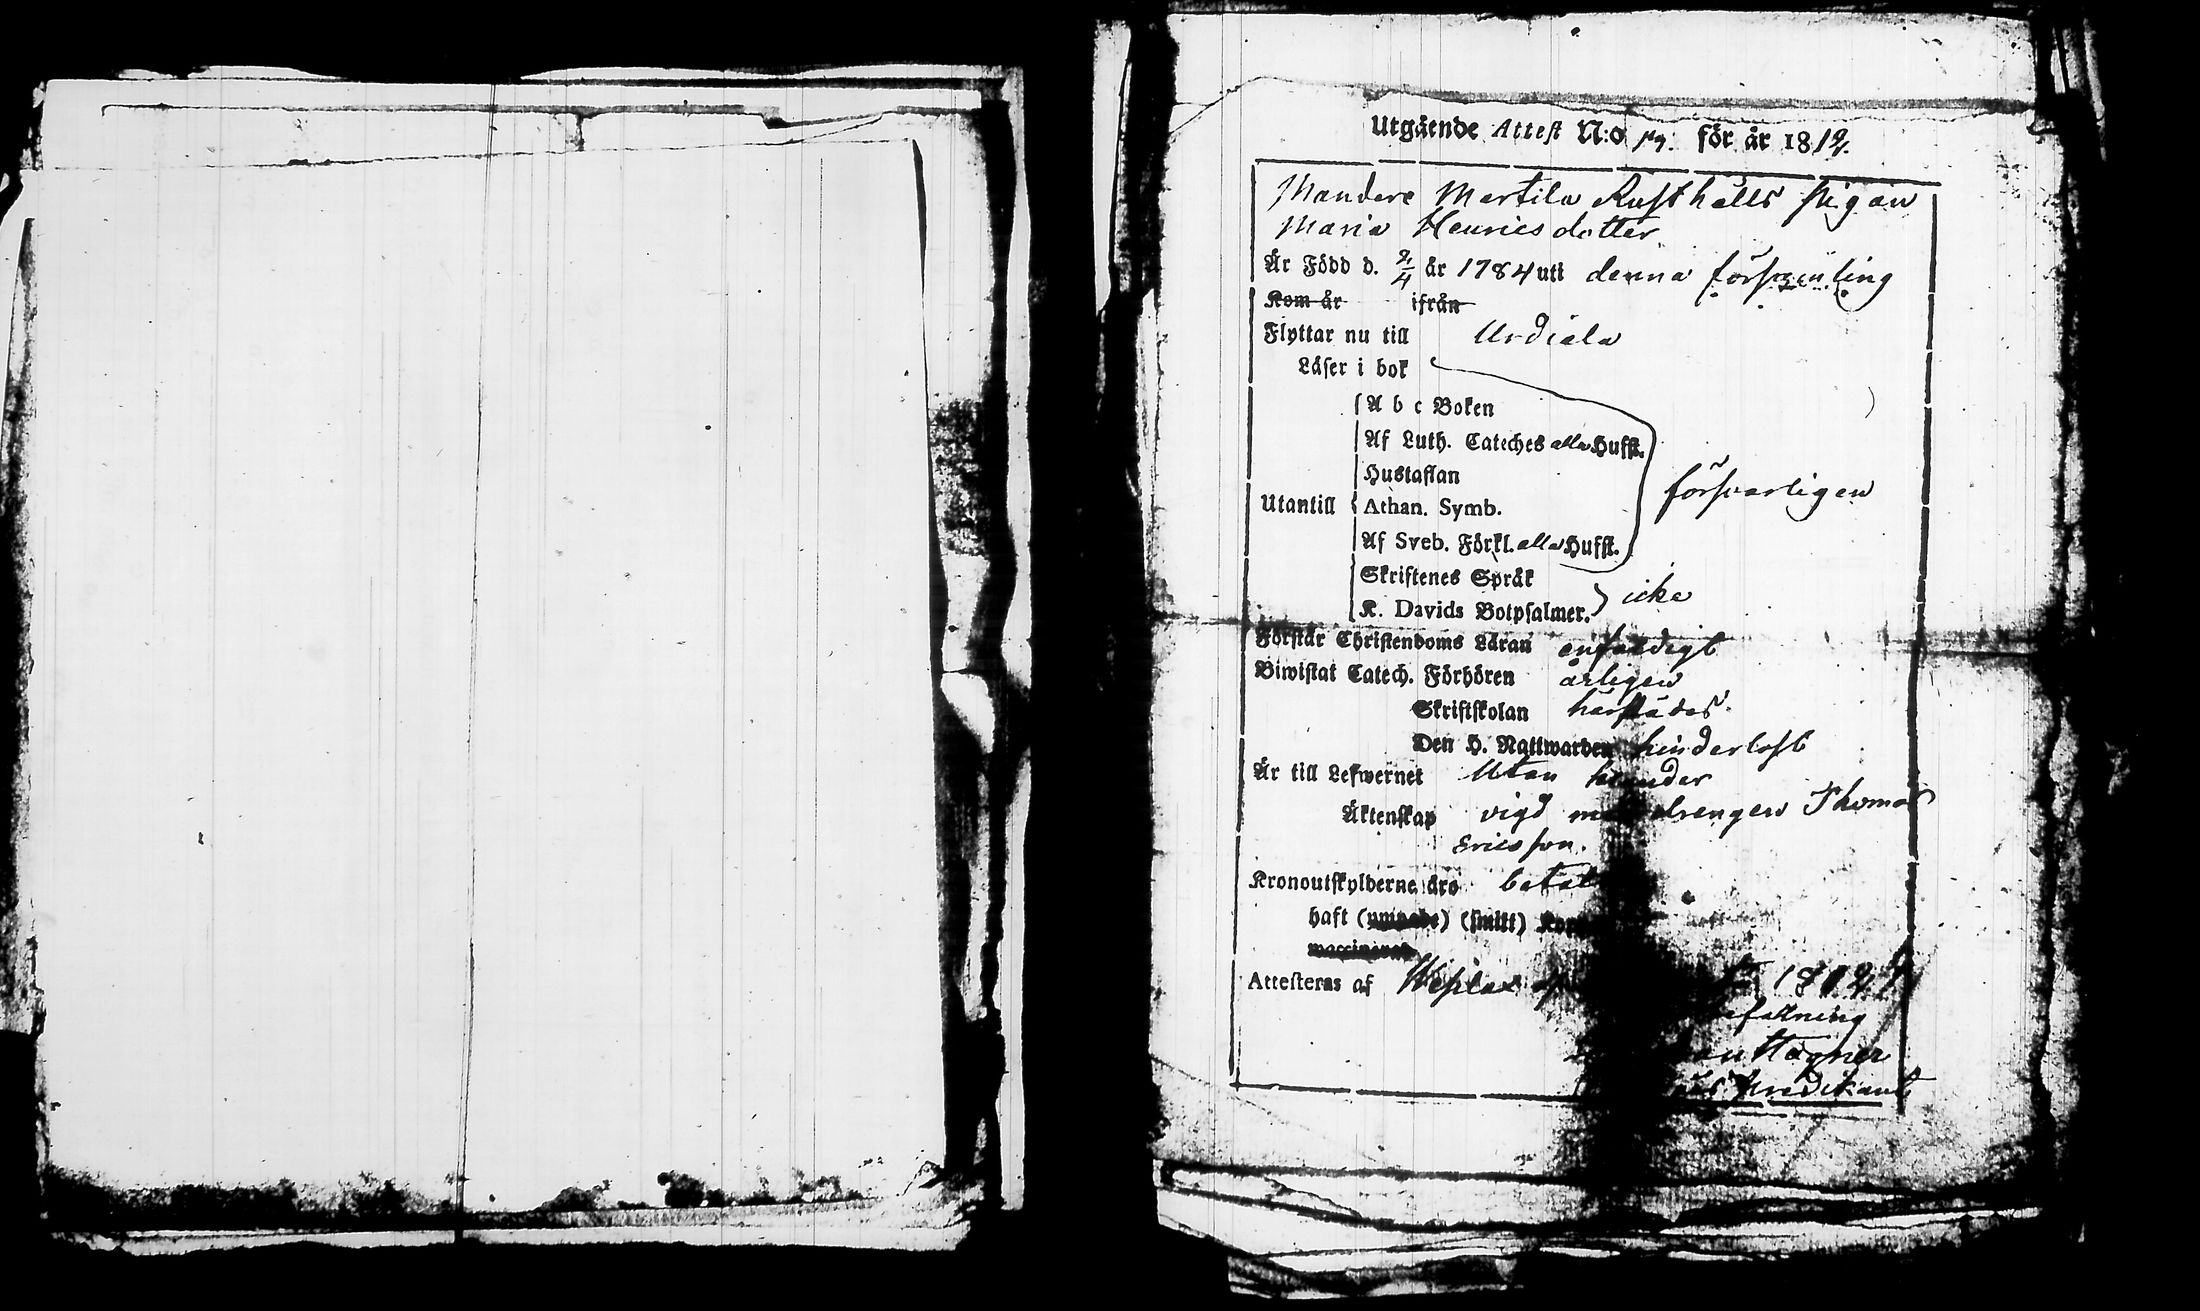 Utgående Attest N:o 17. för år 1812.
Mandere Martila Rusthålls Pigan
Maria Henricsdotter
Är Född d. 2/4 år 1784 uti denna församling
Kom år ifrån
Flyttar nu till Urdiala
Läser i bok
A b c Boken
Af Luth. Cateches alla Hufst.
Hustaflan
försvarligen
Utantill Athan. Symb.
Af Sveb. Förkl. alla Hufst.
Skriftenes Språk
icke
K. Davids Botpsalmer.
Förstår Christendoms Läran enfaldigt
Biwistat Catech. Förhören årligen
Skriftskolan härstädes
Den H. Nattwarden hinderlöst
Är till Lefwernet Utan
Äktenskap vigd drengen Thomas
Ericsson.
Kronoutskylderne äro
haft ( ) (smitt)
Attesteras af
Hagner
Predikant